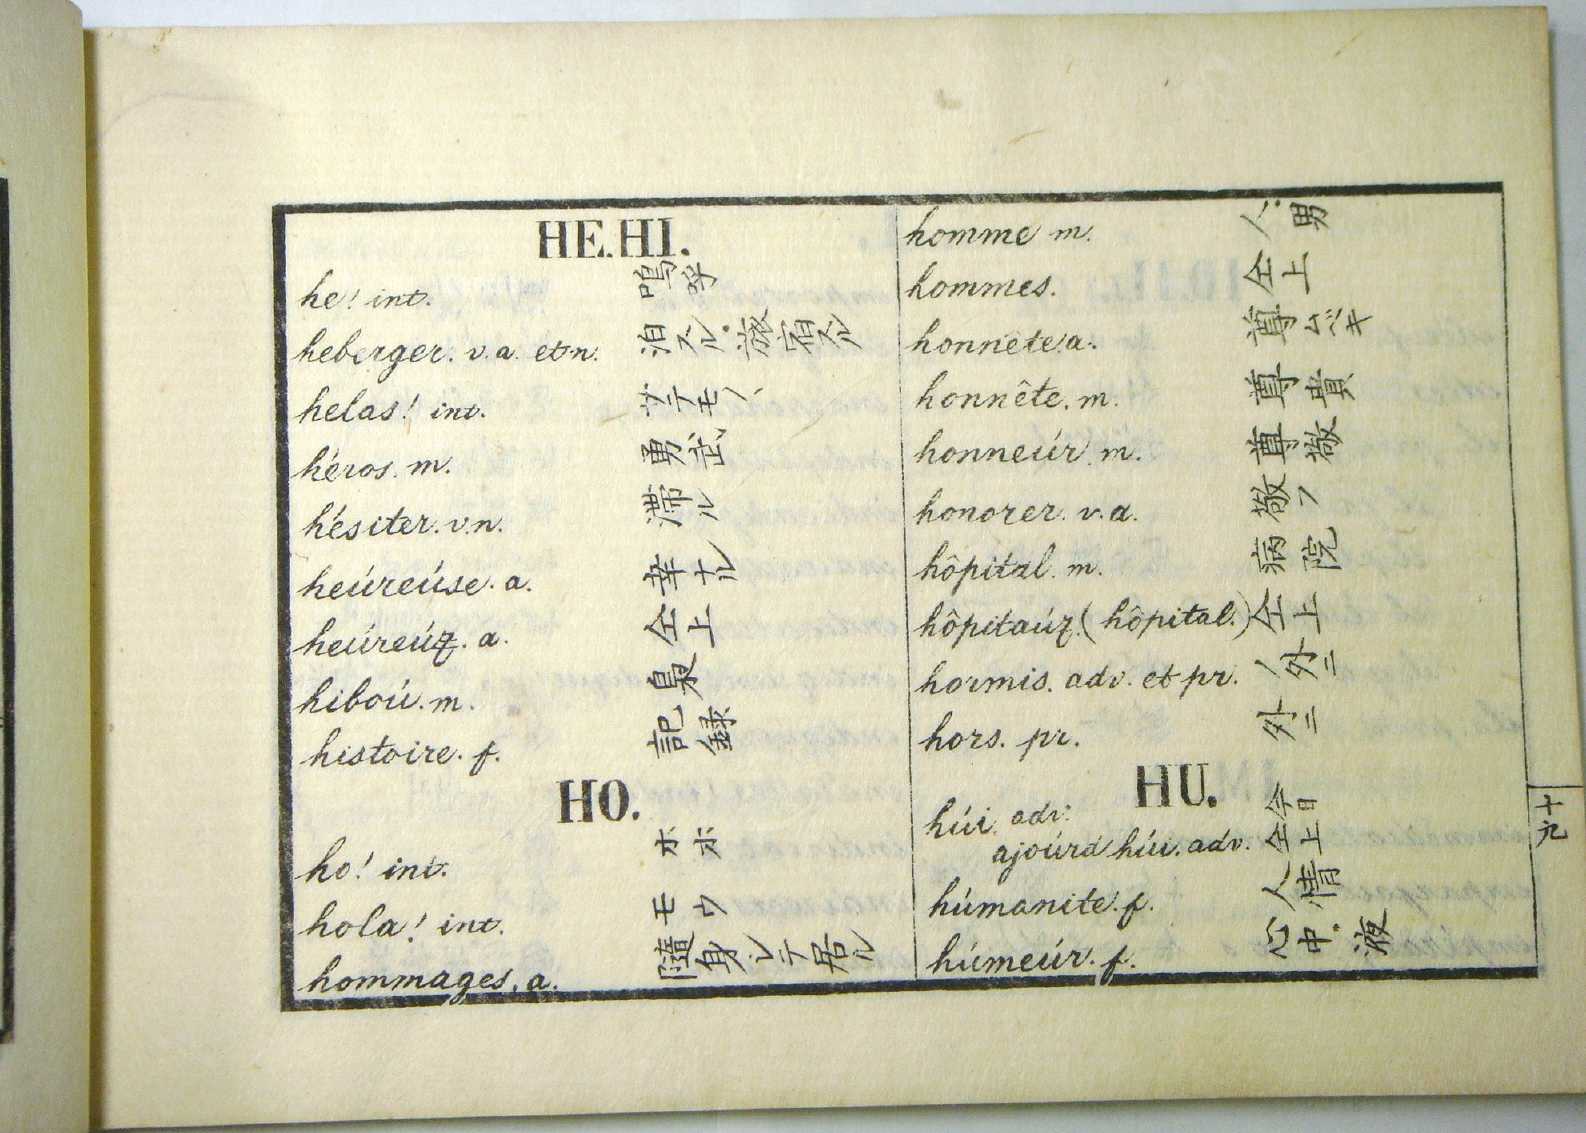 HE.HI.
he! int. 嗚呼
heberger. v.a. et n. 泊スル.旅宿スル
helas! int. サテモノヽ
héros. m. 勇武
hésiter. v.n. 滞ル
heúreúse. a. 幸ナル
heúreúx. a. 仝上
hiboú. m. 梟
histoire. f. 記録
HO.
ho! int. オホ
hola! int. モウ
hommages. a. 隨身シテ居ル
homme m. 人.男
hommes. 仝上
honnete. a. 尊ムベキ
honnête. m. 尊貴
honneúr. m. 尊敬
honorer. v.a. 敬フ
hôpital. m. 病院
hôpitaúx. (hôpital.) 仝上
hormis. adv. et pr. ノ外ニ
hors. pr. 外ニ
HU.
húi. adv. 今日
ajoúrd húi. adv. 仝上
húmanite. f. 人情
húmeúr. f. 心中.液
十九